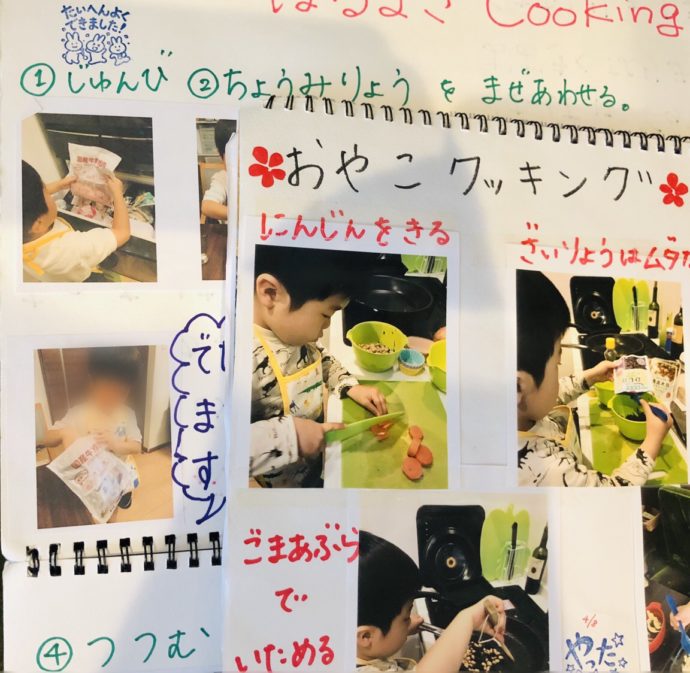 たいへんよく
できました!
はるまき Cooking
① じゅんび ② ちょうみりょう を まぜあわせる。
おやこクッキング
にんじんをきる
ざいりょうはムダ
でます♪
ごまあぶら
で
いためる
4/8
やった
④ つつむ